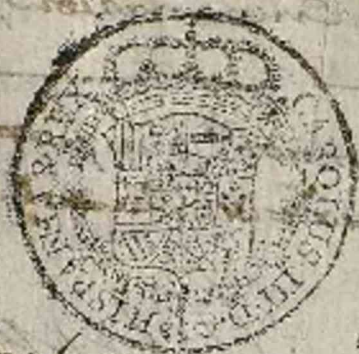 CAROLUS III D. G. HISPANIAR REX